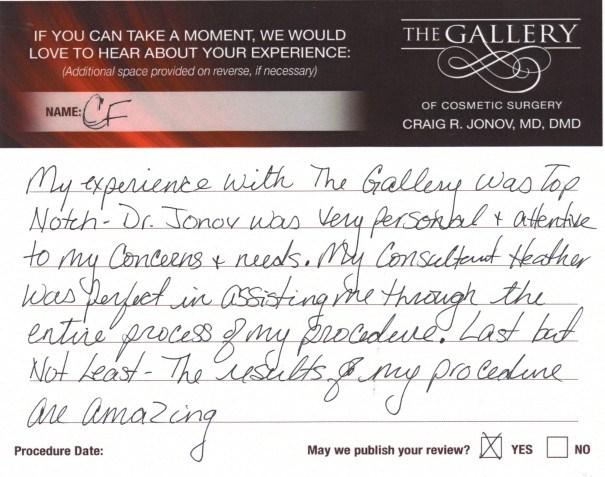 IF YOU CAN TAKE A MOMENT, WE WOULD
LOVE TO HEAR ABOUT YOUR EXPERIENCE:
(Additional space provided on reverse, if necessary)
NAME: CF
THE GALLERY
OF COSMETIC SURGERY
CRAIG R. JONOV, MD, DMD
My experience with The Gallery was Top
Notch - Dr. Jonov was very personal + attentive
to my Concerns + needs. My Consultant Heather
was perfect in assisting me through the
entire process of my procedure. Last but
Not Least - The results of my procedure
are amazing
Procedure Date:
May we publish your review? ☒ YES ☐ NO